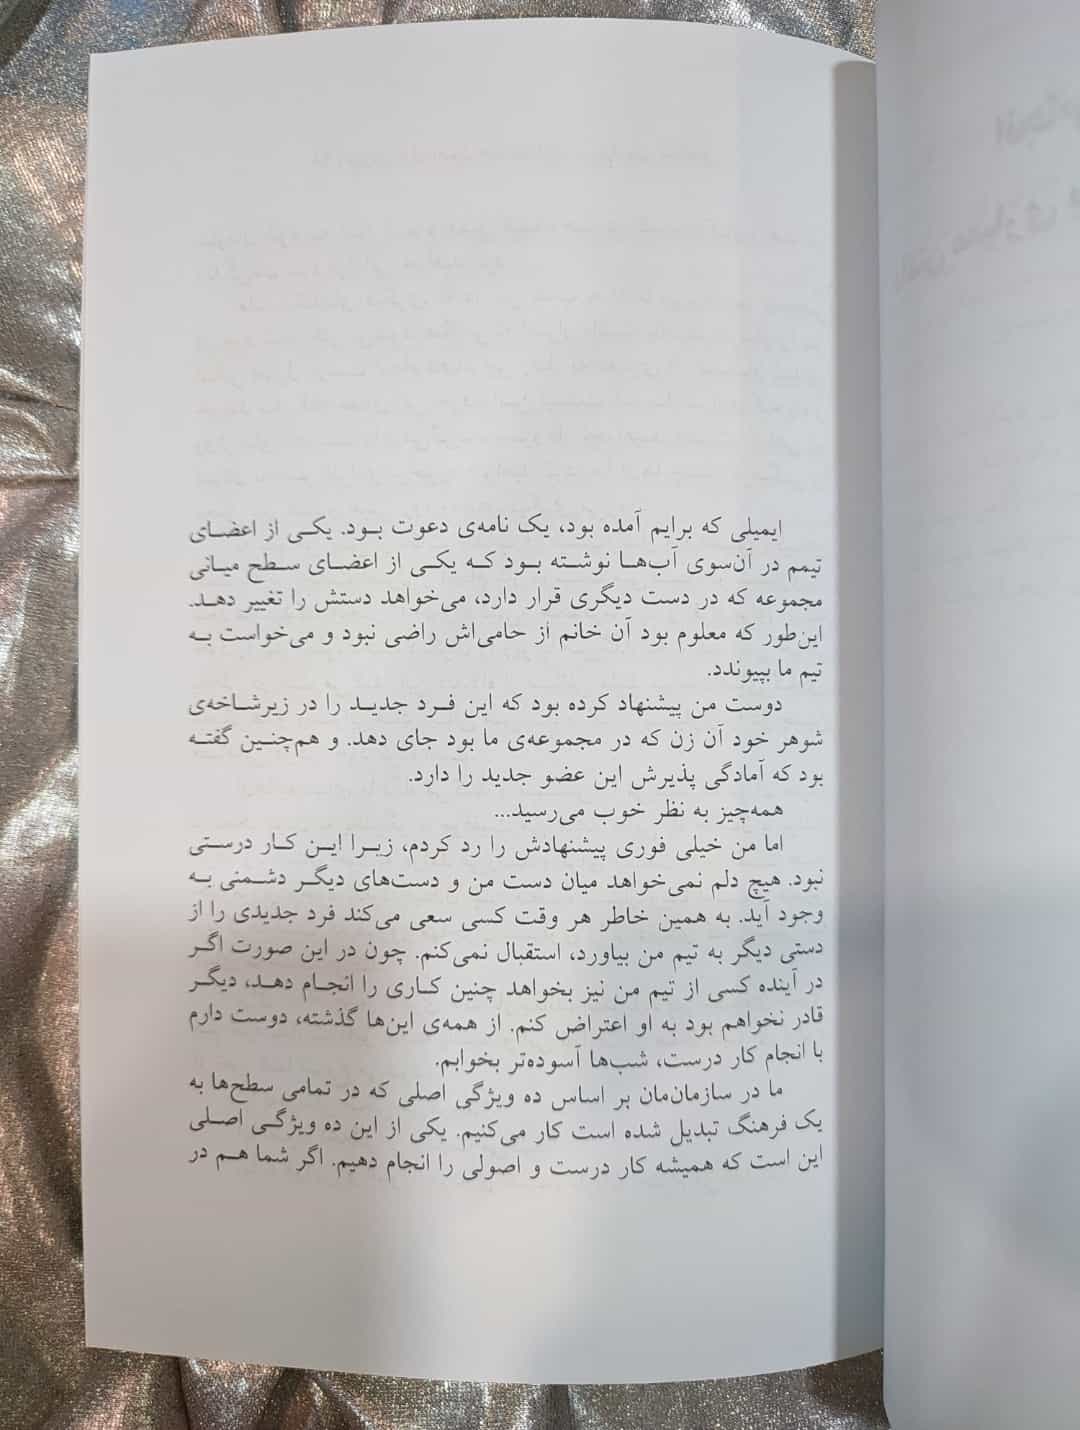 ایمیلی که برایم آمده بود، یک نامه‌ی دعوت بود. یکی از اعضای
تیمم در آن‌سوی آب‌ها نوشته بود که یکی از اعضای سطح میانی
مجموعه که در دست دیگری قرار دارد، می‌خواهد دستش را تغییر دهد.
این‌طور که معلوم بود آن خانم از حامی‌اش راضی نبود و می‌خواست به
تیم ما بپیوندد.
دوست من پیشنهاد کرده بود که این فرد جدید را در زیرشاخه‌ی
شوهر خود آن زن که در مجموعه‌ی ما بود جای دهد. و هم‌چنین گفته
بود که آمادگی پذیرش این عضو جدید را دارد.
همه‌چیز به نظر خوب می‌رسید...
اما من خیلی فوری پیشنهادش را رد کردم، زیرا این کار درستی
نبود. هیچ دلم نمی‌خواهد میان دست من و دست‌های دیگر دشمنی به
وجود آید. به همین خاطر هر وقت کسی سعی می‌کند فرد جدیدی را از
دستی دیگر به تیم من بیاورد، استقبال نمی‌کنم. چون در این صورت اگر
در آینده کسی از تیم من نیز بخواهد چنین کاری را انجام دهد، دیگر
قادر نخواهم بود به او اعتراض کنم. از همه‌ی این‌ها گذشته، دوست دارم
با انجام کار درست، شب‌ها آسوده‌تر بخوابم.
ما در سازمان‌مان بر اساس ده ویژگی اصلی که در تمامی سطح‌ها به
یک فرهنگ تبدیل شده است کار می‌کنیم. یکی از این ده ویژگی اصلی
این است که همیشه کار درست و اصولی را انجام دهیم. اگر شما هم در